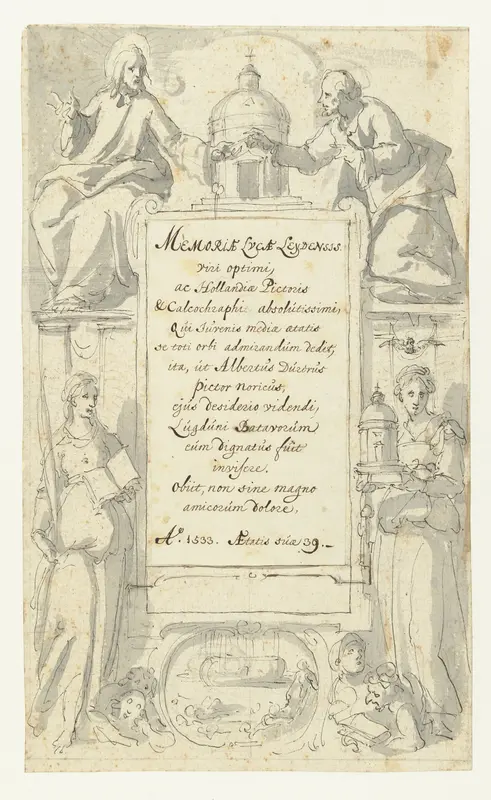 MEMORIÆ LVCÆ LEYDENSIS
viri optimi,
ac Hollandiæ Pictoris
& Calcochraphi absolutissimi,
Qui Juvenis mediæ ætatis
se toti orbi admirandum dedit,
ita, út Albertús Dúrerús
pictor noricús,
ejús desiderio videndi,
Lúgdúni Batavorúm
eúm dignatús fúit
invisere.
Obiit, non sine magno
amicorúm dolore,
Aº. 1533. Ætatis súæ 39.–